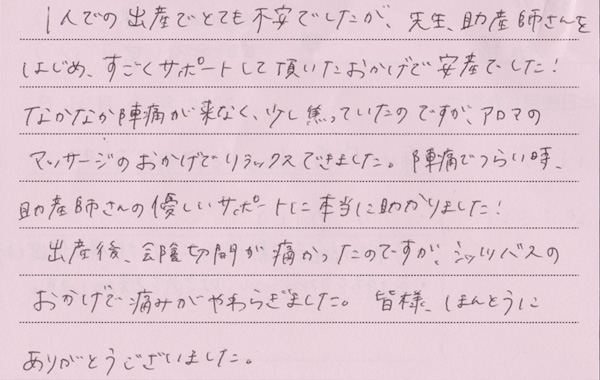 1人での出産でとても不安でしたが、先生、助産師さんを
はじめ、すごくサポートして頂いたおかげで安産でした!
なかなか陣痛が来なく、少し焦っていたのですが、アロマの
マッサージのおかげでリラックスできました。陣痛でつらい時、
助産師さんの優しいサポートに本当に助かりました!
出産後、会陰切開が痛かったのですが、シッツバスの
おかげで痛みがやわらぎました。皆様、ほんとうに
ありがとうございました。